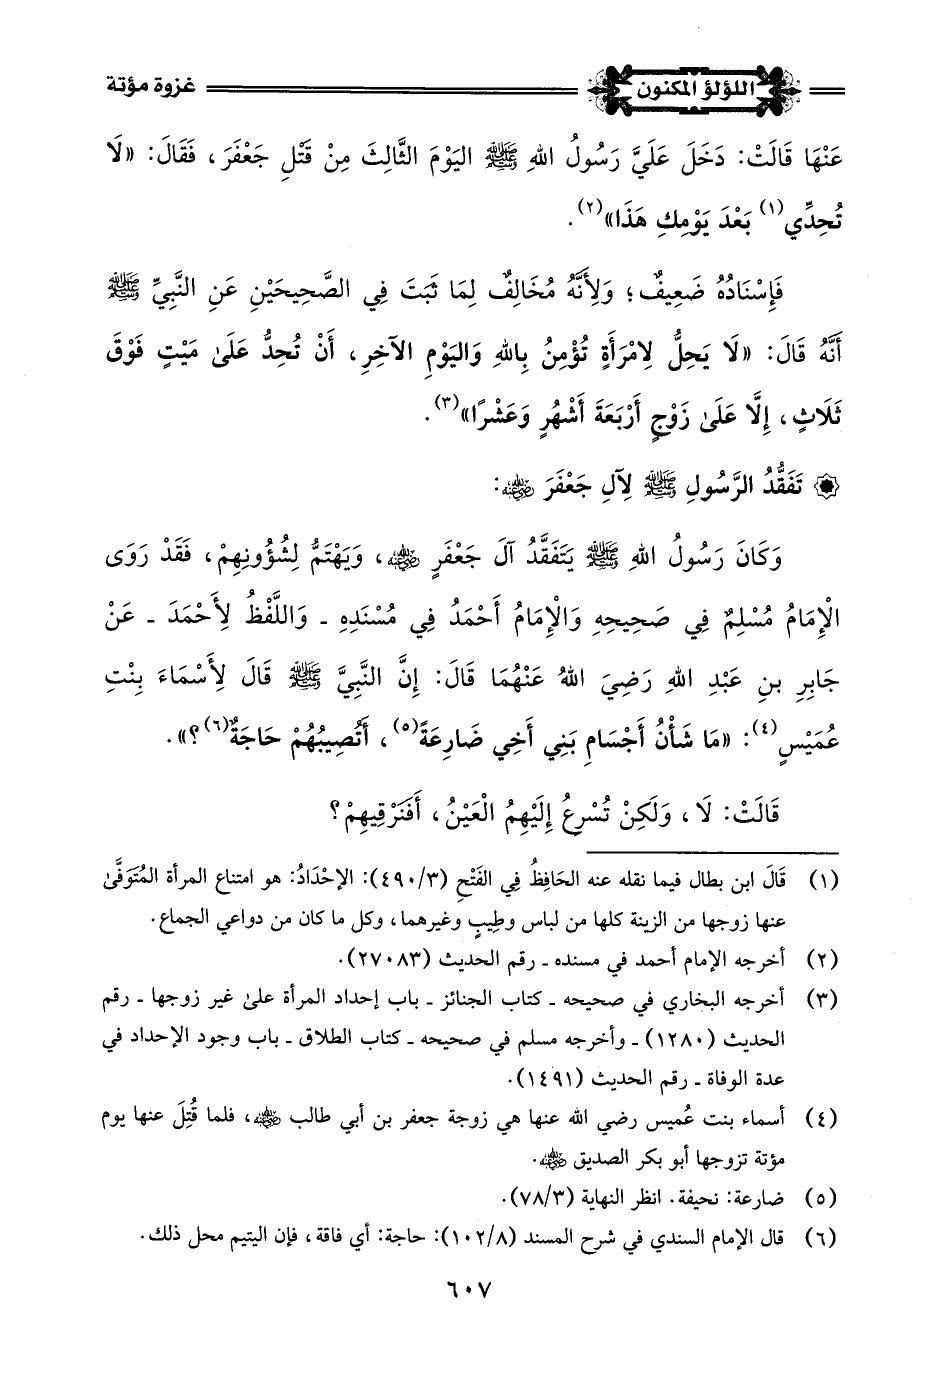 اللؤلؤ المكنون
غزوة مؤتة
عَنْهَا قَالَتْ: دَخَلَ عَلَيَّ رَسُولُ اللهِ ﷺ اليَوْمَ الثَّالِثَ مِنْ قَتْلِ جَعْفَرَ، فَقَالَ: «لَا
تُحِدِّي(١) بَعْدَ يَوْمِكِ هَذَا»(٢).
فَإِسْنَادُهُ ضَعِيفٌ؛ وَلِأَنَّهُ مُخَالِفٌ لِمَا ثَبَتَ فِي الصَّحِيحَيْنِ عَنِ النَّبِيِّ ﷺ
أَنَّهُ قَالَ: «لَا يَحِلُّ لِامْرَأَةٍ تُؤْمِنُ بِاللهِ وَاليَوْمِ الآخِرِ، أَنْ تُحِدُّ عَلَىٰ مَيْتٍ فَوْقَ
ثَلَاثٍ، إِلَّا عَلَىٰ زَوْجٍ أَرْبَعَةَ أَشْهُرٍ وَعَشْرًا»(٣).
تَفَقُّدُ الرَّسُولِ ﷺ لِآلِ جَعْفَرَ رضي الله عنه:
وَكَانَ رَسُولُ اللهِ ﷺ يَتَفَقَّدُ آلَ جَعْفَرٍ رضي الله عنه، وَيَهْتَمُّ لِشُؤُونِهِمْ، فَقَدْ رَوَى
الإِمَامُ مُسْلِمٌ فِي صَحِيحِهِ وَالإِمَامُ أَحْمَدُ فِي مُسْنَدِهِ - وَاللَّفْظُ لِأَحْمَدَ - عَنْ
جَابِرِ بنِ عَبْدِ اللهِ رَضِيَ اللهُ عَنْهُمَا قَالَ: إِنَّ النَّبِيَّ ﷺ قَالَ لِأَسْمَاءَ بِنْتِ
عُمَيْسٍ(٤): «مَا شَأْنُ أَجْسَامِ بَنِي أَخِي ضَارِعَةً(٥)، أَتُصِيبُهُمْ حَاجَةٌ(٦)؟».
قَالَتْ: لَا، وَلَكِنْ تُسْرِعُ إِلَيْهِمُ الْعَيْنُ، أَفَنَرْقِيهِمْ؟
(١) قَالَ ابن بطال فيما نقله عنه الحَافِظُ فِي الفَتْحِ (٤٩٠/٣): الإِحْدَادُ: هو امتناع المرأة المُتَوَفَّىٰ
عنها زوجها من الزينة كلها من لباس وطِيبٍ وغيرهما، وكل ما كان من دواعي الجماع.
(٢) أخرجه الإمام أحمد في مسنده - رقم الحديث (٢٧٠٨٣).
(٣) أخرجه البخاري في صحيحه - كتاب الجنائز - باب إحداد المرأة علىٰ غير زوجها - رقم
الحديث (١٢٨٠) - وأخرجه مسلم في صحيحه - كتاب الطلاق - باب وجود الإحداد في
عدة الوفاة - رقم الحديث (١٤٩١).
(٤) أسماء بنت عُميس رضي الله عنها هي زوجة جعفر بن أبي طالب رضي الله عنه، فلما قُتِلَ عنها يوم
مؤتة تزوجها أبو بكر الصديق رضي الله عنه.
(٥) ضارعة: نحيفة. انظر النهاية (٧٨/٣).
(٦) قال الإمام السندي في شرح المسند (١٠٢/٨): حاجة: أي فاقة، فإن اليتيم محل ذلك.
٦٠٧